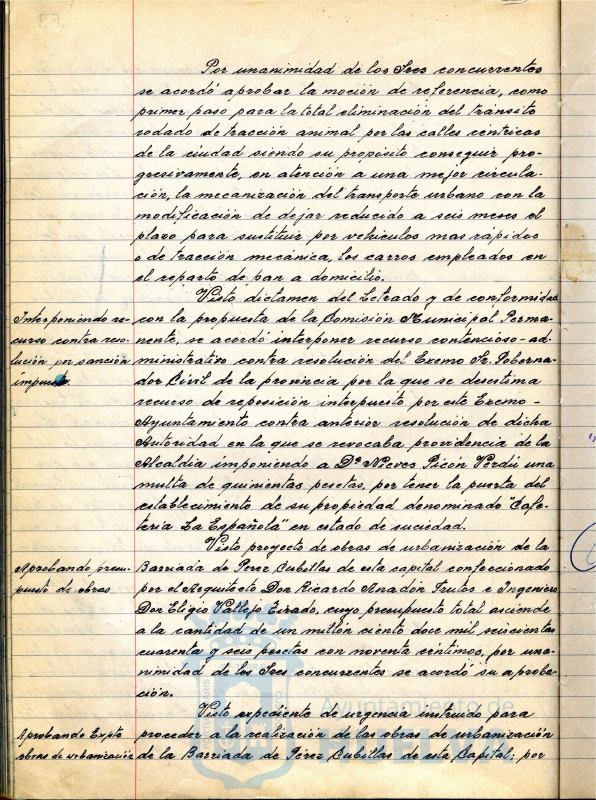 Por unanimidad de los Sres concurrentes
se acordó aprobar la moción de referencia, como
primer paso para la total eliminación del tránsito
rodado de tracción animal por las calles céntricas
de la ciudad siendo su propósito conseguir pro-
gresivamente, en atención a una mejor circula-
ción, la mecanización del transporte urbano con la
modificación de dejar reducido a seis meses el
plazo para sustituir por vehiculos mas rápidos
o de tracción mecánica, los carros empleados en
el reparto de pan a domicilio.
Interponiendo re-
curso contra reso-
lución por sanción
impuesta.
Visto dictamen del Letrado y de conformidad
con la propuesta de la Comisión Municipal Perma-
nente, se acordó interponer recurso contencioso-ad-
ministrativo contra resolución del Excmo Sr. Goberna-
dor Civil de la provincia por la que se desestima
recurso de reposición interpuesto por este Excmo-
Ayuntamiento contra anterior resolución de dicha
Autoridad en la que se revocaba providencia de la
Alcaldía imponiendo a Dª Nieves Picón Verdú una
multa de quinientas pesetas, por tener la puerta del
establecimiento de su propiedad denominado "Cafe-
tería La Española" en estado de suciedad.
Aprobando presu-
puesto de obras
Visto proyecto de obras de urbanización de la
Barriada de Pérez Cubillas de esta capital confeccionado
por el Arquitecto Don Ricardo Anadón Frutos e Ingeniero
Don Eligio Vallejo Eirado, cuyo presupuesto total asciende
a la cantidad de un millón ciento doce mil seiscientas
cuarenta y seis pesetas con noventa céntimos, por una-
nimidad de los Sres concurrentes se acordó su aproba-
ción.
Aprobando Expte
obras de urbanización
Visto expediente de urgencia instruido para
proceder a la realización de las obras de urbanización
de la Barriada de Pérez Cubillas de esta Capital; por
Ayuntamiento de
HUELVA